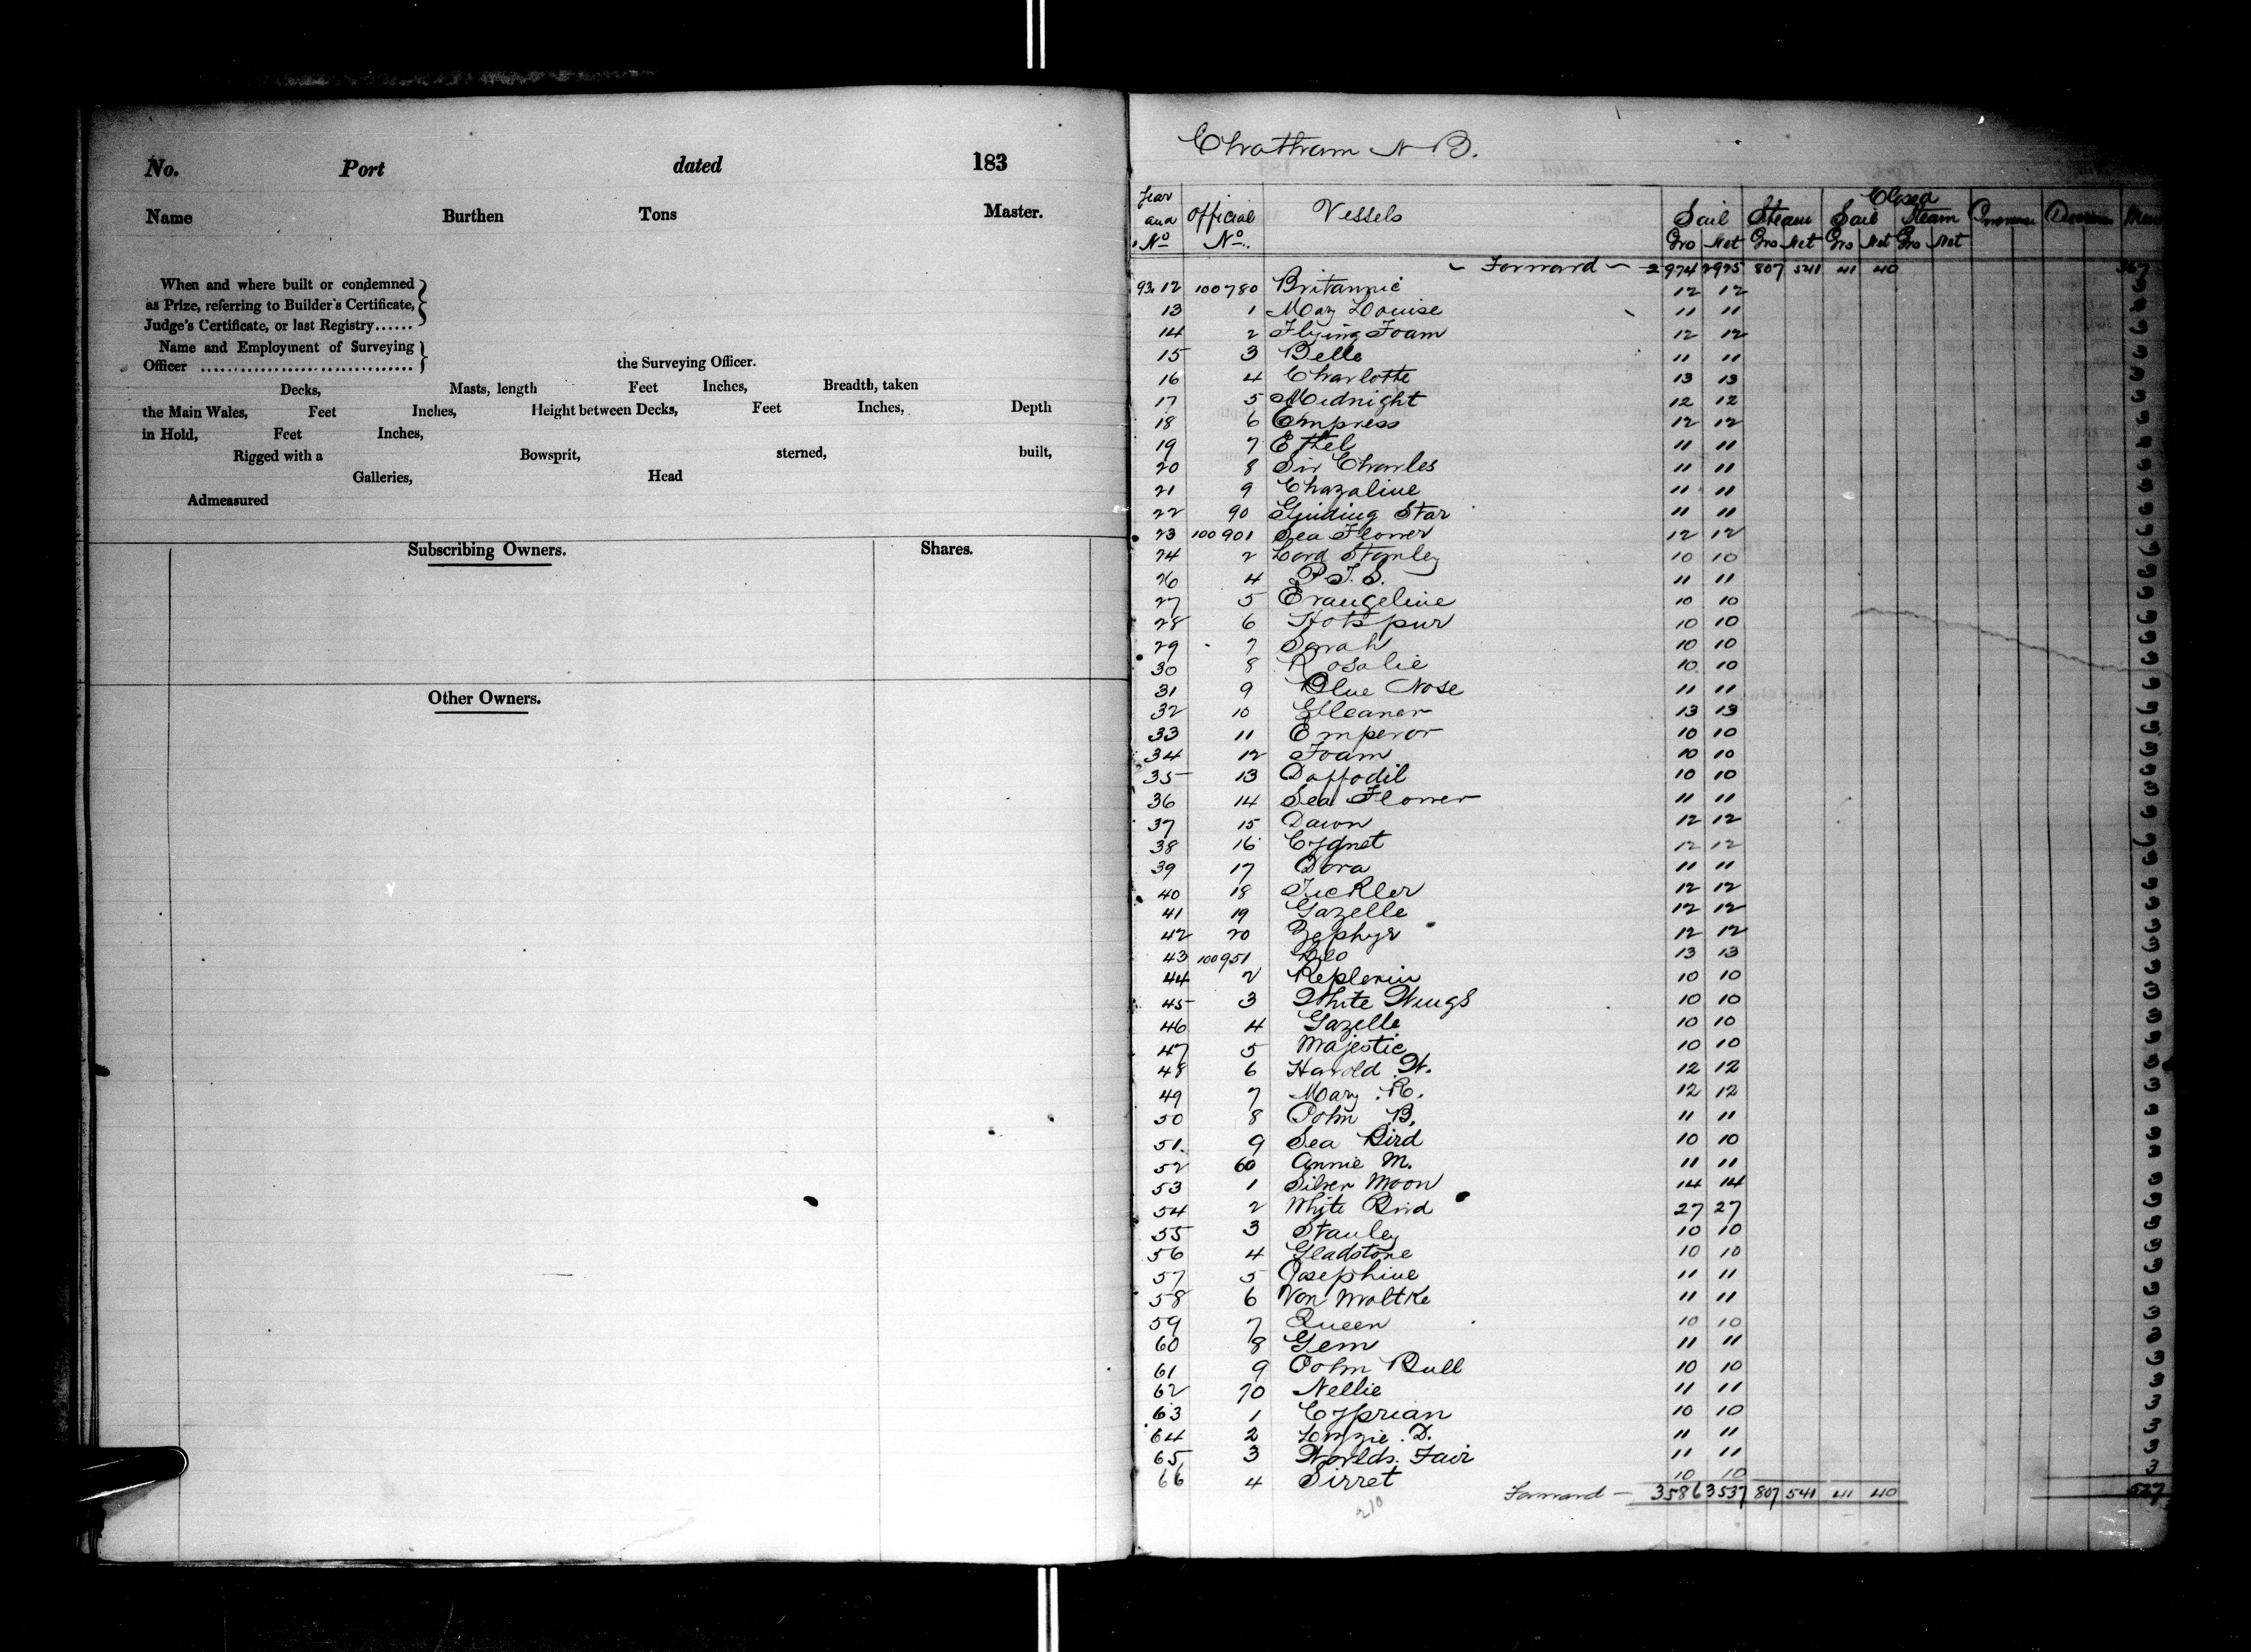 No. Port dated 183
Name Burthen Tons Master.
When and where built or condemned
as Prize, referring to Builder's Certificate,
Judge's Certificate, or last Registry......
Name and Employment of Surveying
Officer ................................ the Surveying Officer.
Decks, Masts, length Feet Inches, Breadth, taken
the Main Wales, Feet Inches, Height between Decks, Feet Inches, Depth
in Hold, Feet Inches,
Rigged with a Bowsprit, sterned, built,
Galleries, Head
Admeasured
Subscribing Owners. Shares.
Other Owners.
Chatham N B.
Closed
Year and No Official No. Vessels Sail Steam Sail Steam Men
Gro Net Gro Net Gro Net Gro Net
Forward 2974 2925 807 541 41 40 367
93.12 100780 Britannic 12 12
13 1 Mary Louise 11 11
14 2 Flying Foam 12 12 3
15 3 Belle 11 11 3
16 4 Charlotte 13 13 3
17 5 Midnight 12 12 3
18 6 Empress 12 12 3
19 7 Ethel 11 11 3
20 8 Sir Charles 11 11 3
21 9 Chazaline 11 11 3
22 90 Guiding Star 11 11 3
23 100901 Sea Flower 12 12 3
24 2 Lord Stanley 10 10 3
26 4 P.T.S. 11 11 3
27 5 Evangeline 10 10 3
28 6 Hotspur 10 10 3
29 7 Sarah 10 10 3
30 8 Rosalie 10 10 3
31 9 Blue Nose 11 11 3
32 10 Elleanor 13 13 3
33 11 Emperor 10 10 3
34 12 Foam 10 10 3
35 13 Daffodil 10 10 3
36 14 Sea Flower 11 11 3
37 15 Dawn 12 12 3
38 16 Cygnet 12 12 3
39 17 Dora 11 11 3
40 18 Tickler 12 12 3
41 19 Gazelle 12 12 3
42 20 Zephyr 12 12 3
43 100951 13 13 3
44 2 10 10 3
45 3 White Wings 10 10 3
46 4 Gazelle 10 10 3
47 5 Majestic 10 10 3
48 6 Harold W. 12 12 3
49 7 Mary R. 12 12 3
50 8 John B. 11 11 3
51. 9 Sea Bird 10 10 3
52 60 Annie M. 11 11 3
53 1 Silver Moon 14 14 3
54 2 White Bird 27 27 3
55 3 Stanley 10 10 3
56 4 Gladstone 10 10 3
57 5 Josephine 11 11 3
58 6 Von Moltke 11 11 3
59 7 Queen 10 10 3
60 8 Gem 11 11 3
61 9 John Bull 10 10 3
62 70 Nellie 11 11 3
63 1 Cyprian 10 10 3
64 2 Lizzie D. 11 11 3
65 3 Worlds Fair 11 11 3
66 4 Sirret 10 10 3
Forward 3586 3537 807 541 41 40 527
210